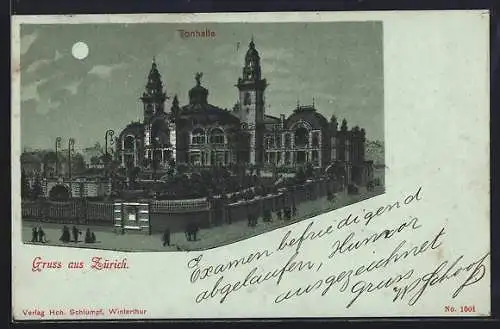 Tonhalle
Gruss aus Zürich.
Examen befriedigend
abgelaufen, Humor
ausgezeichnet
Gruss
Verlag Hch. Schlumpf, Winterthur
No. 1001